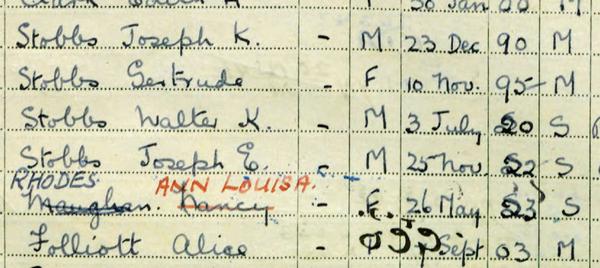 30 Jan 00 M
Stobbs Joseph K. - M 23 Dec 90 M
Stobbs Gertrude - F 10 Nov. 95 M
Stobbs Walter K. - M 3 July 20 S
Stobbs Joseph E. - M 25 Nov. 22 S
RHODES. ANN LOUISA. -
Maughan. Nancy - F 26 May 23 S
Folliott Alice - Sept 03 M